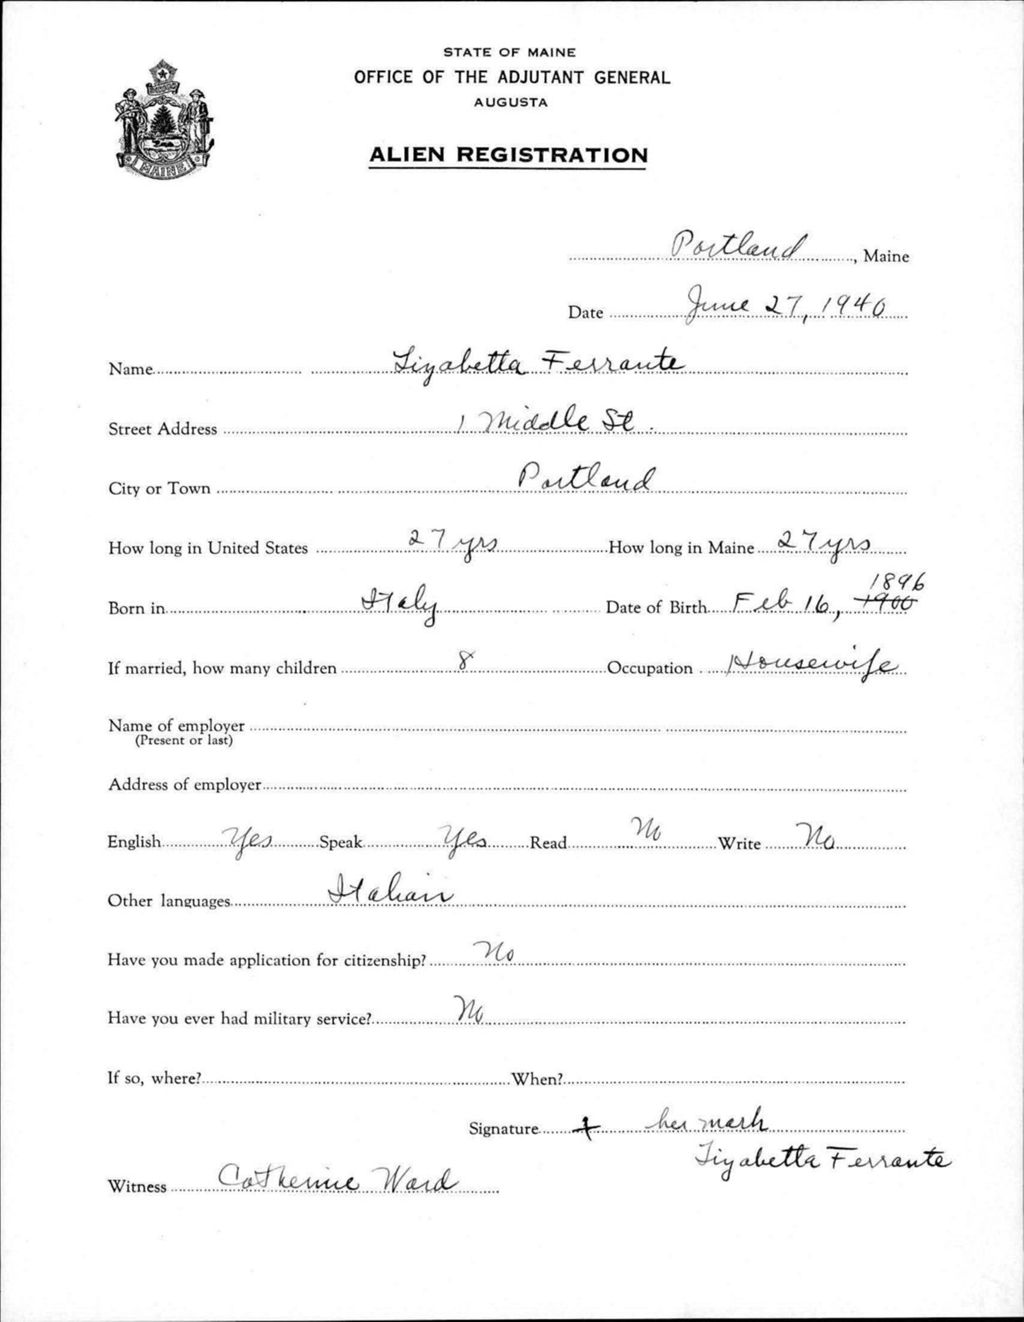 STATE OF MAINE
OFFICE OF THE ADJUTANT GENERAL
AUGUSTA
ALIEN REGISTRATION
MAINE
Portland, Maine
Date June 27, 1940
Name Lizabetta Ferrante
Street Address 1 Middle St.
City or Town Portland
How long in United States 27 yrs How long in Maine 27 yrs
1896
Born in Italy Date of Birth Feb 16, 1900
If married, how many children 8 Occupation Housewife
Name of employer
(Present or last)
Address of employer
English Yes Speak Yes Read No Write No
Other languages Italian
Have you made application for citizenship? No
Have you ever had military service? No
If so, where? When?
Signature + her mark
Lizabetta Ferrante
Witness Catherine Ward